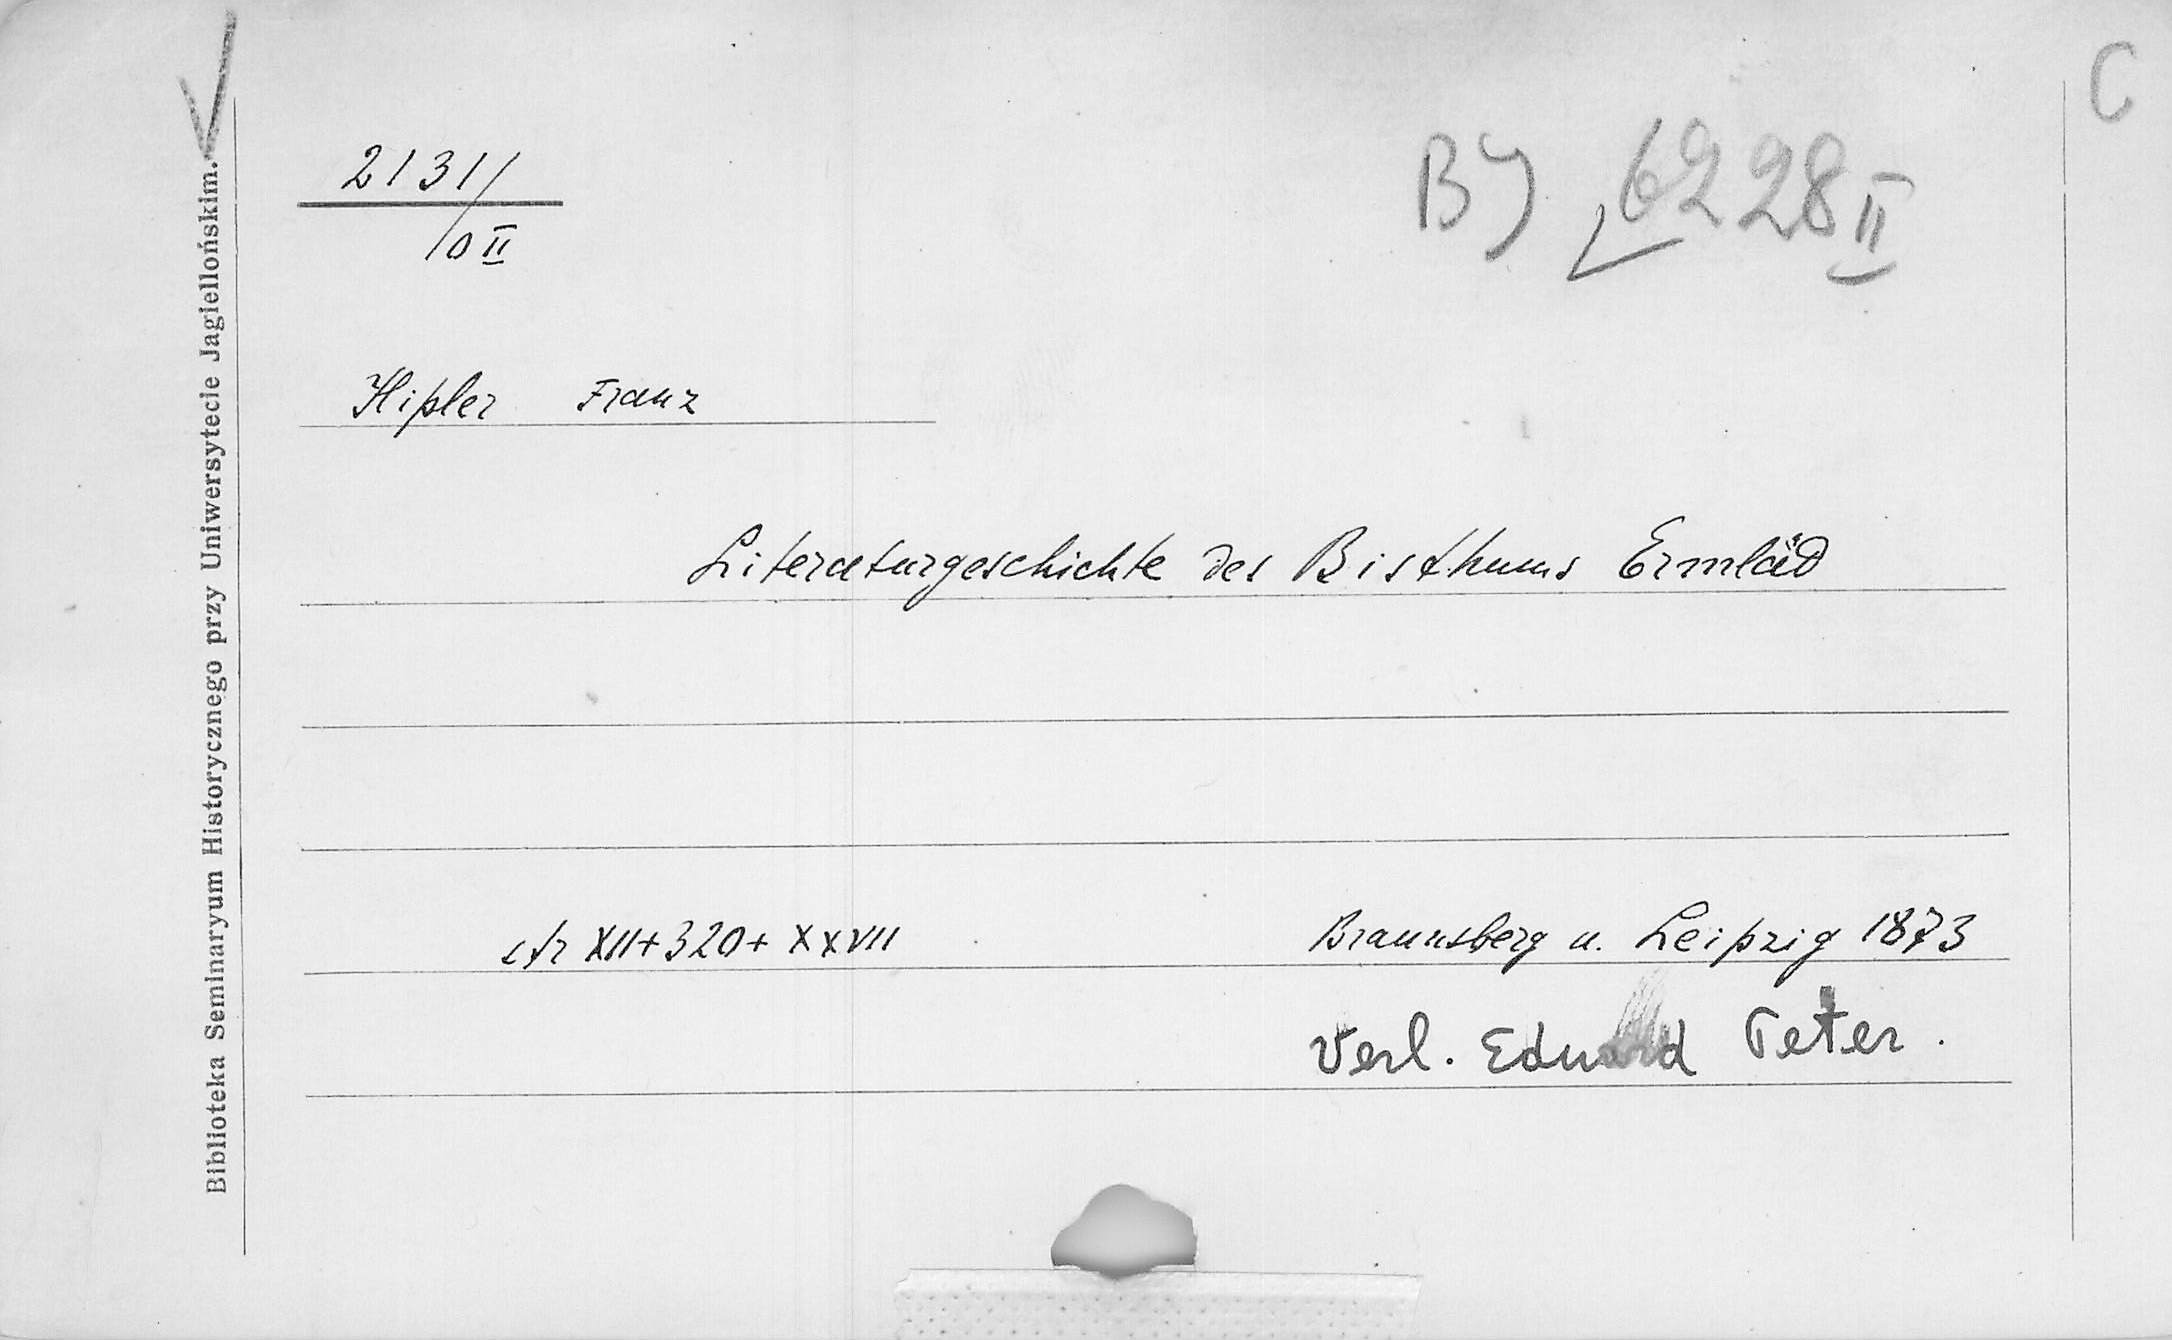 C
2131/
10 II
BJ 6228 II
Hipler Franz
Literaturgeschichte des Bisthums Ermläd
str XII+320+XXVII
Braunsberg u. Leipzig 1873
Verl. Eduard Peter.
Biblioteka Seminaryum Historycznego przy Uniwersytecie Jagiellońskim.